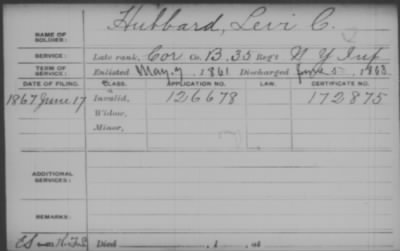 NAME OF SOLDIER: Hubbard, Levi C.
SERVICE: Late rank, Cor Co. B, 35 Reg't N Y Inf
TERM OF SERVICE: Enlisted May 7, 1861 Discharged June 5, 1863
DATE OF FILING. CLASS. APPLICATION NO. LAW. CERTIFICATE NO.
1867 June 17 Invalid, 126678 172875
Widow,
Minor,
ADDITIONAL SERVICES:
REMARKS:
Died , 1 , at